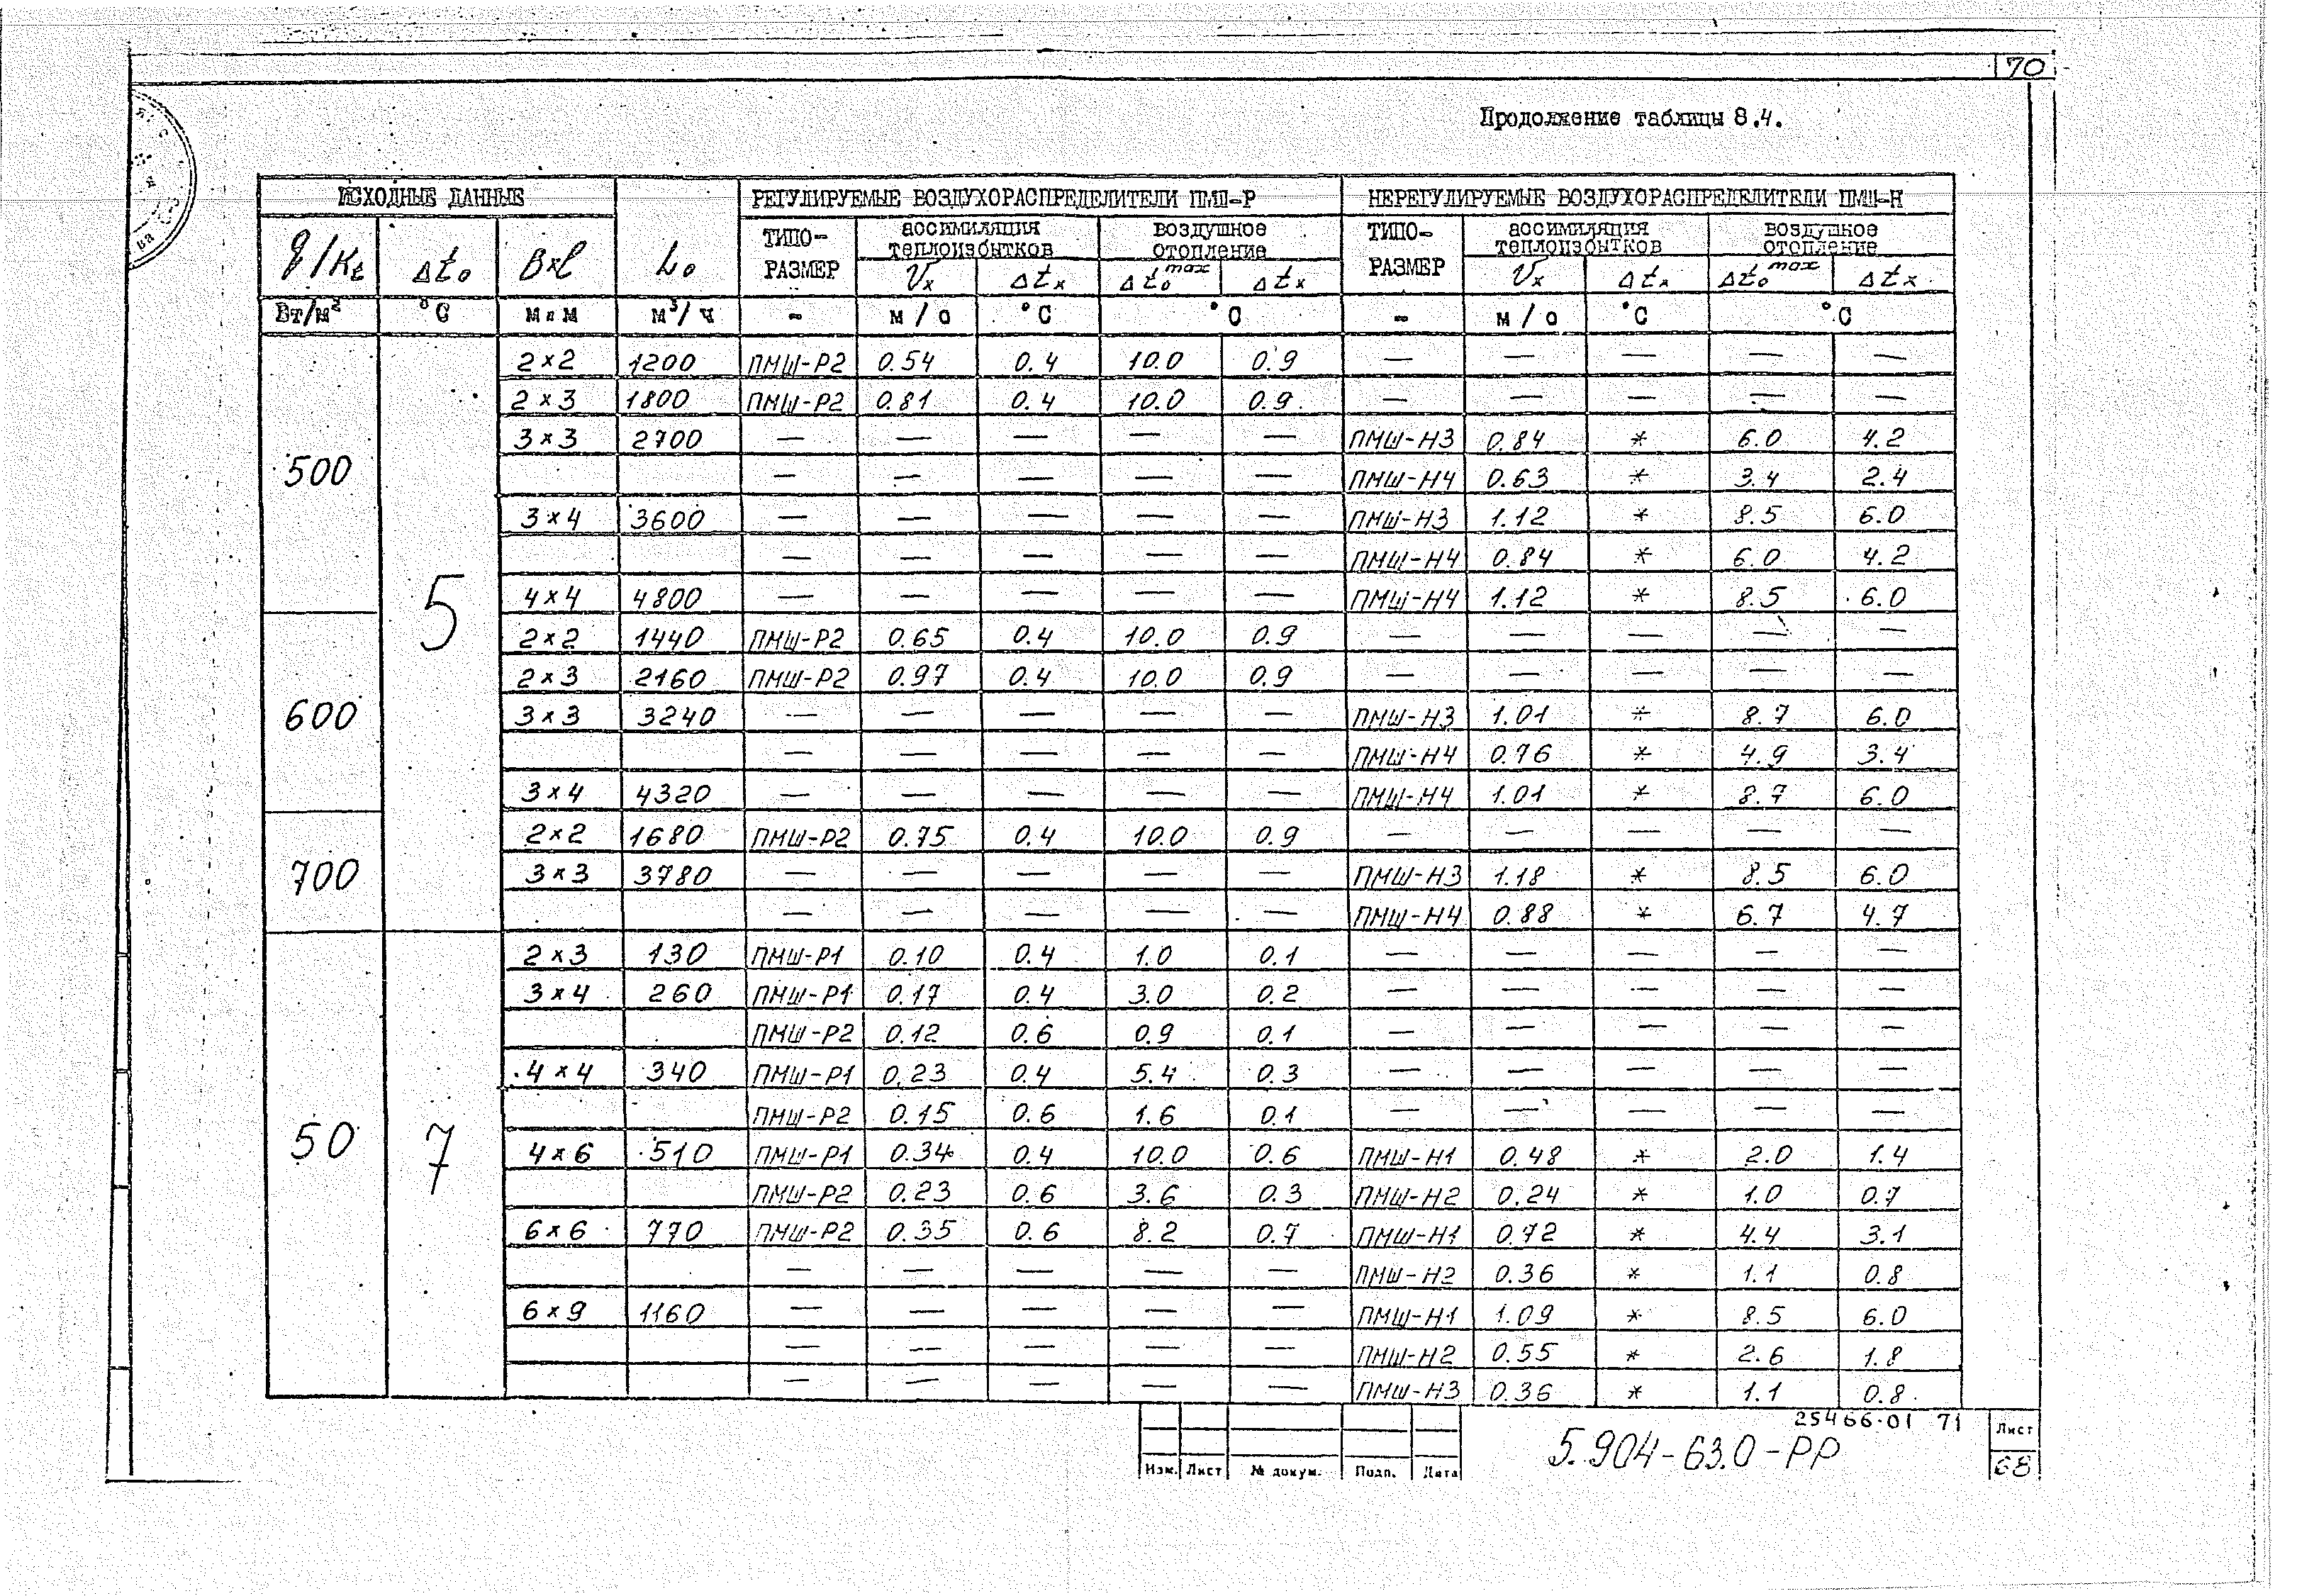 70
Продолжение таблицы 8.4.
ИСХОДНЫЕ ДАННЫЕ РЕГУЛИРУЕМЫЕ ВОЗДУХОРАСПРЕДЕЛИТЕЛИ ПМШ-Р НЕРЕГУЛИРУЕМЫЕ ВОЗДУХОРАСПРЕДЕЛИТЕЛИ ПМШ-Н
q/Kt Δto Bxl Lo ТИПО-РАЗМЕР ассимиляция теплоизбытков воздушное отопление ТИПО-РАЗМЕР ассимиляция теплоизбытков воздушное отопление
Vx Δtx Δto max Δtx Vx Δtx Δto max Δtx
Вт/м² °С м x м м³/ч - м/с °С °С - м/с °С °С
500 5 2×2 1200 ПМШ-Р2 0.54 0.4 10.0 0.9 — — — — —
2×3 1800 ПМШ-Р2 0.81 0.4 10.0 0.9 — — — — —
3×3 2700 — — — — — ПМШ-Н3 0.84 * 6.0 4.2
— — — — — ПМШ-Н4 0.63 * 3.4 2.4
3×4 3600 — — — — — ПМШ-Н3 1.12 * 8.5 6.0
— — — — — ПМШ-Н4 0.84 * 6.0 4.2
4×4 4800 — — — — — ПМШ-Н4 1.12 * 8.5 6.0
600 2×2 1440 ПМШ-Р2 0.65 0.4 10.0 0.9 — — — — —
2×3 2160 ПМШ-Р2 0.97 0.4 10.0 0.9 — — — — —
3×3 3240 — — — — — ПМШ-Н3 1.01 * 8.7 6.0
— — — — — ПМШ-Н4 0.76 * 4.9 3.4
3×4 4320 — — — — — ПМШ-Н4 1.01 * 8.7 6.0
700 2×2 1680 ПМШ-Р2 0.75 0.4 10.0 0.9 — — — — —
3×3 3780 — — — — — ПМШ-Н3 1.18 * 8.5 6.0
— — — — — ПМШ-Н4 0.88 * 6.7 4.7
50 7 2×3 130 ПМШ-Р1 0.10 0.4 1.0 0.1 — — — — —
3×4 260 ПМШ-Р1 0.17 0.4 3.0 0.2 — — — — —
ПМШ-Р2 0.12 0.6 0.9 0.1 — — — — —
4×4 340 ПМШ-Р1 0.23 0.4 5.4 0.3 — — — — —
ПМШ-Р2 0.15 0.6 1.6 0.1 — — — — —
4×6 510 ПМШ-Р1 0.34 0.4 10.0 0.6 ПМШ-Н1 0.48 * 2.0 1.4
ПМШ-Р2 0.23 0.6 3.6 0.3 ПМШ-Н2 0.24 * 1.0 0.7
6×6 770 ПМШ-Р2 0.35 0.6 8.2 0.7 ПМШ-Н1 0.72 * 4.4 3.1
— — — — — ПМШ-Н2 0.36 * 1.1 0.8
6×9 1160 — — — — — ПМШ-Н1 1.09 * 8.5 6.0
— — — — — ПМШ-Н2 0.55 * 2.6 1.8
— — — — — ПМШ-Н3 0.36 * 1.1 0.8
25466-01 71
Изм. Лист № докум. Подп. Дата 5.904-63.0-РР Лист
68